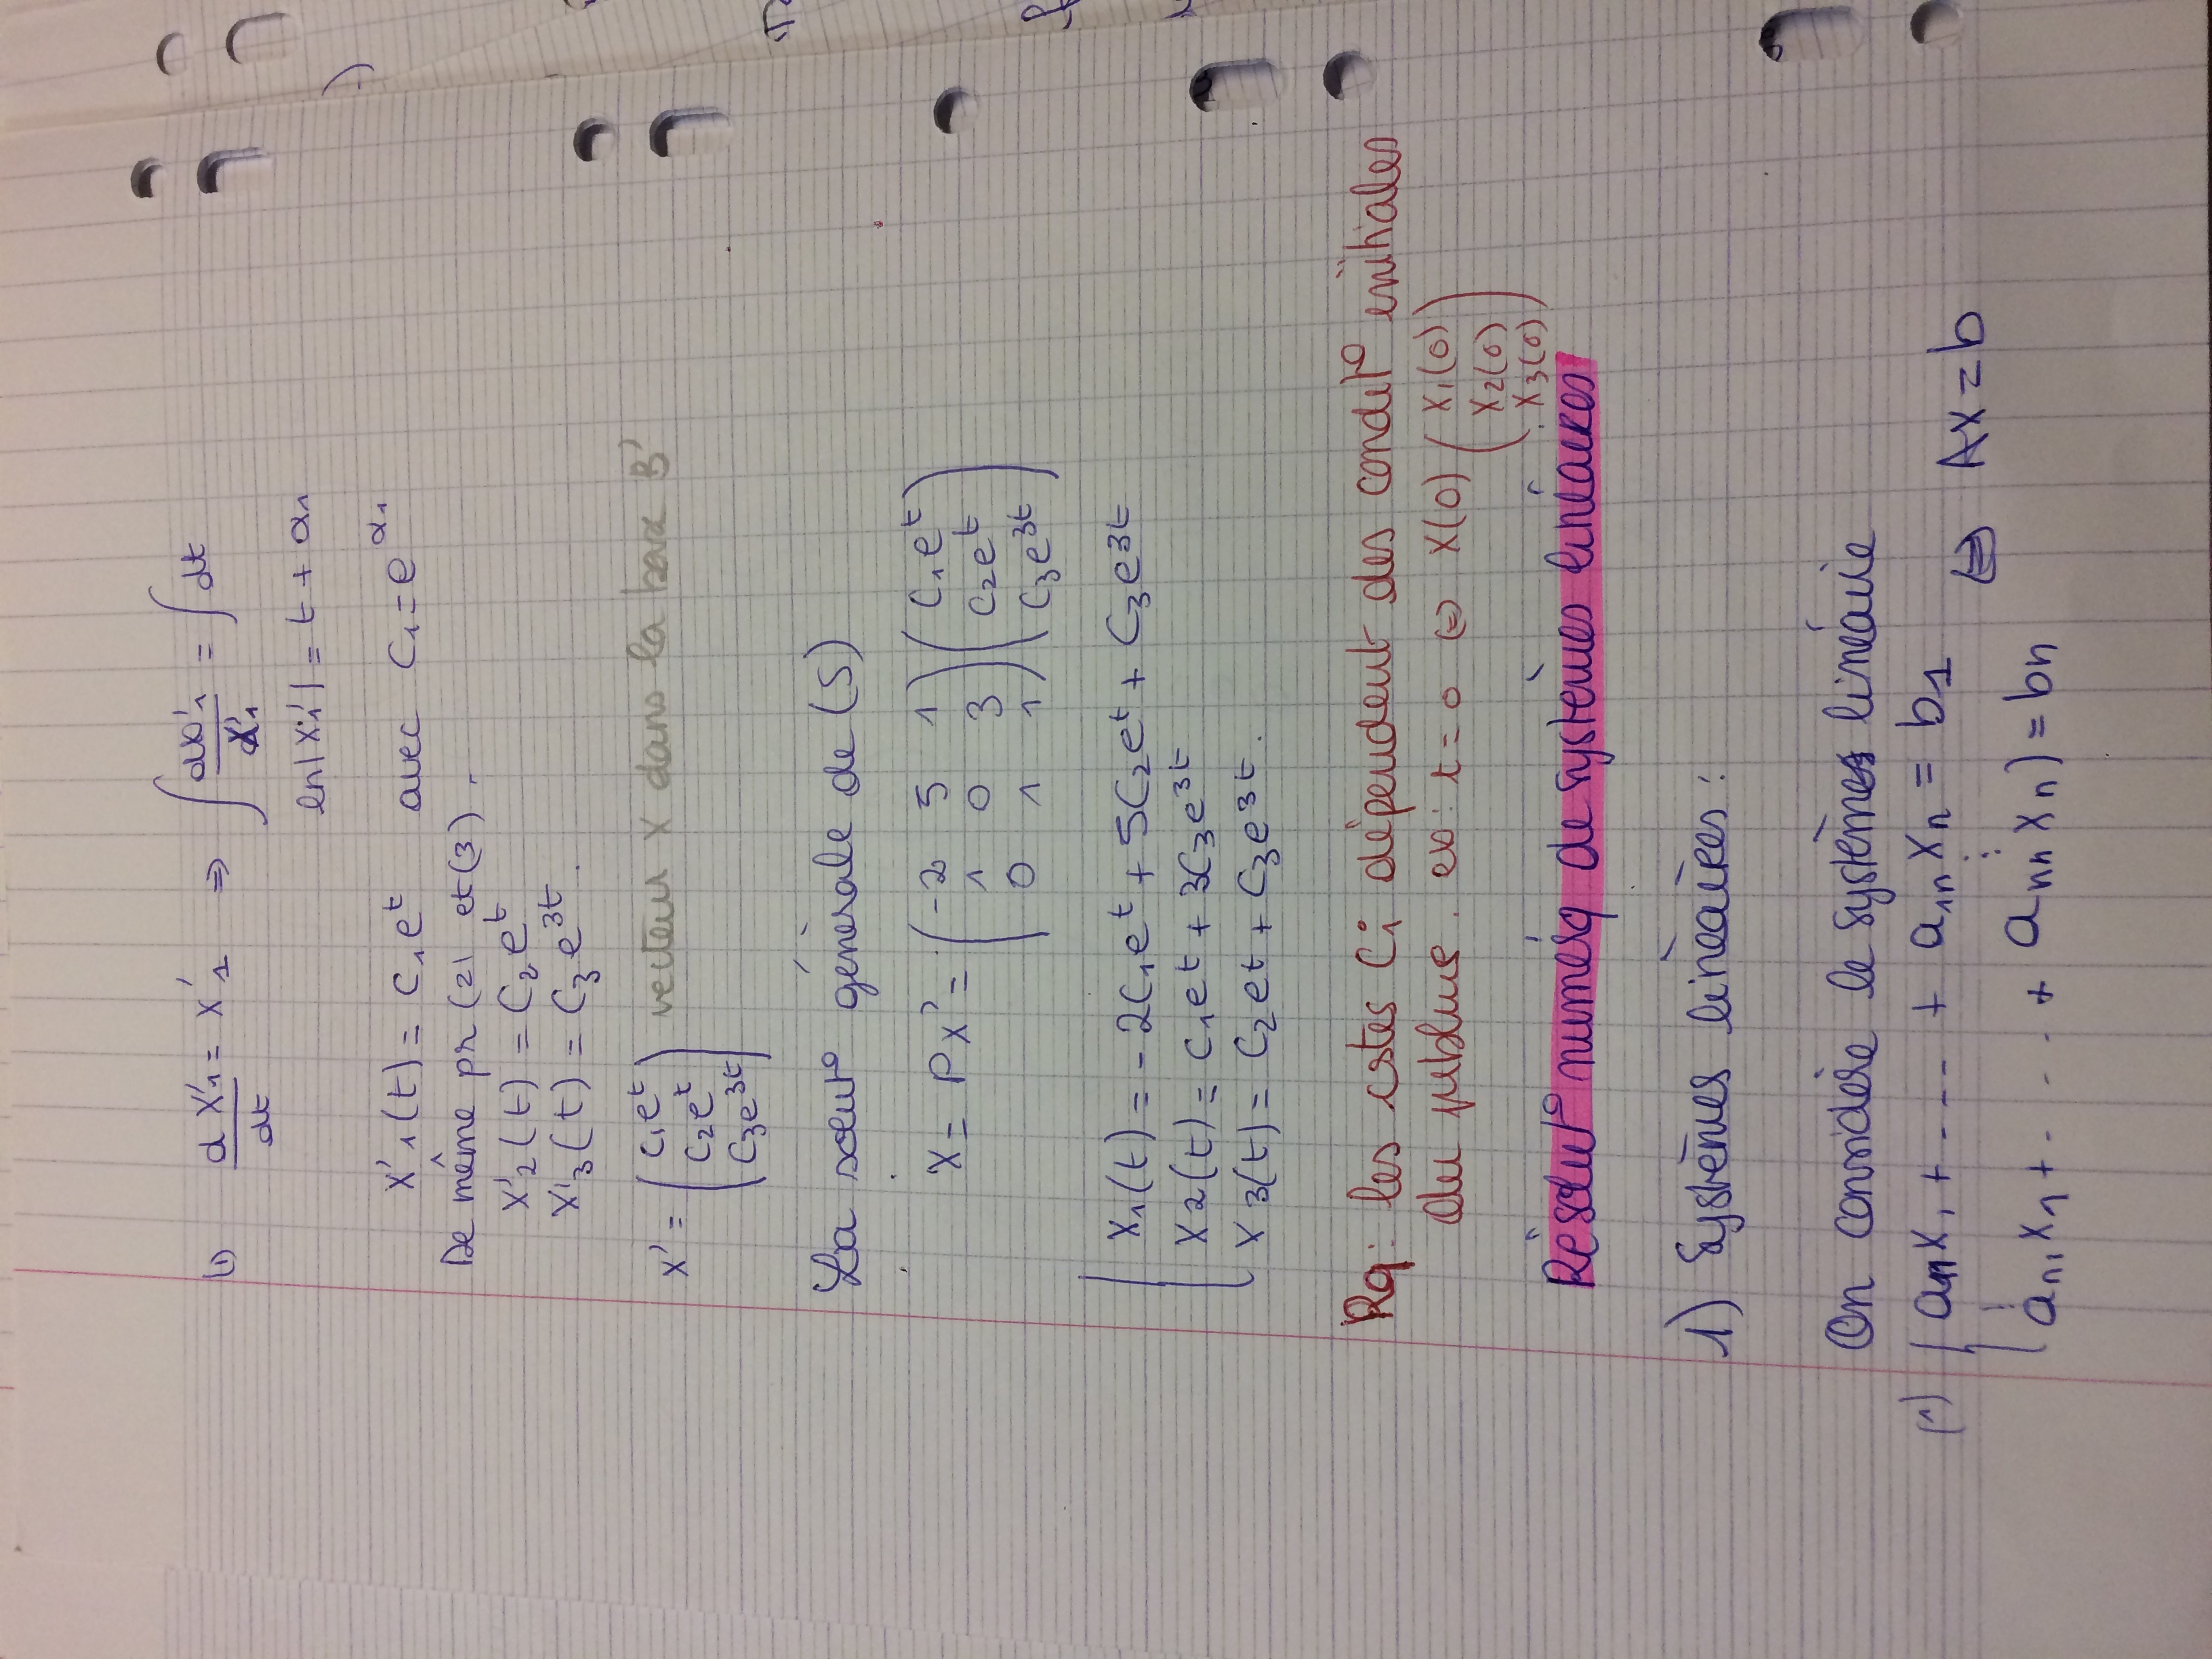 (1) dX'1/dt = X'1 ⇒ ∫ dx'1/X'1 = ∫ dt
ln|X'1| = t + α1
X'1(t) = C1e^t avec C1 = e^α1
De même pr (2) et (3).
X'2(t) = C2e^t
X'3(t) = C3e^3t.
X' = (C1e^t vecteur X dans la base B'
C2e^t
C3e^3t)
La solut° générale de (S)
X = PX' = (-2 5 1) (C1e^t)
(1 0 3) (C2e^t)
(0 1 1) (C3e^3t)
X1(t) = -2C1e^t + 5C2e^t + C3e^3t
X2(t) = C1e^t + 3C3e^3t
X3(t) = C2e^t + C3e^3t.
Rq: les cstes Ci dépendent des condit° initiales
du pblme. ex: t = 0 ⇔ X(0) (X1(0)
X2(0)
X3(0))
Résolut° numérq de systèmes linéaires
1) Systèmes linéaires :
On considère le système linéaire
(1) a11x1 + ---- + a1n xn = b1
⇔ AX = b
an1x1 + - - - - + ann xn) = bn